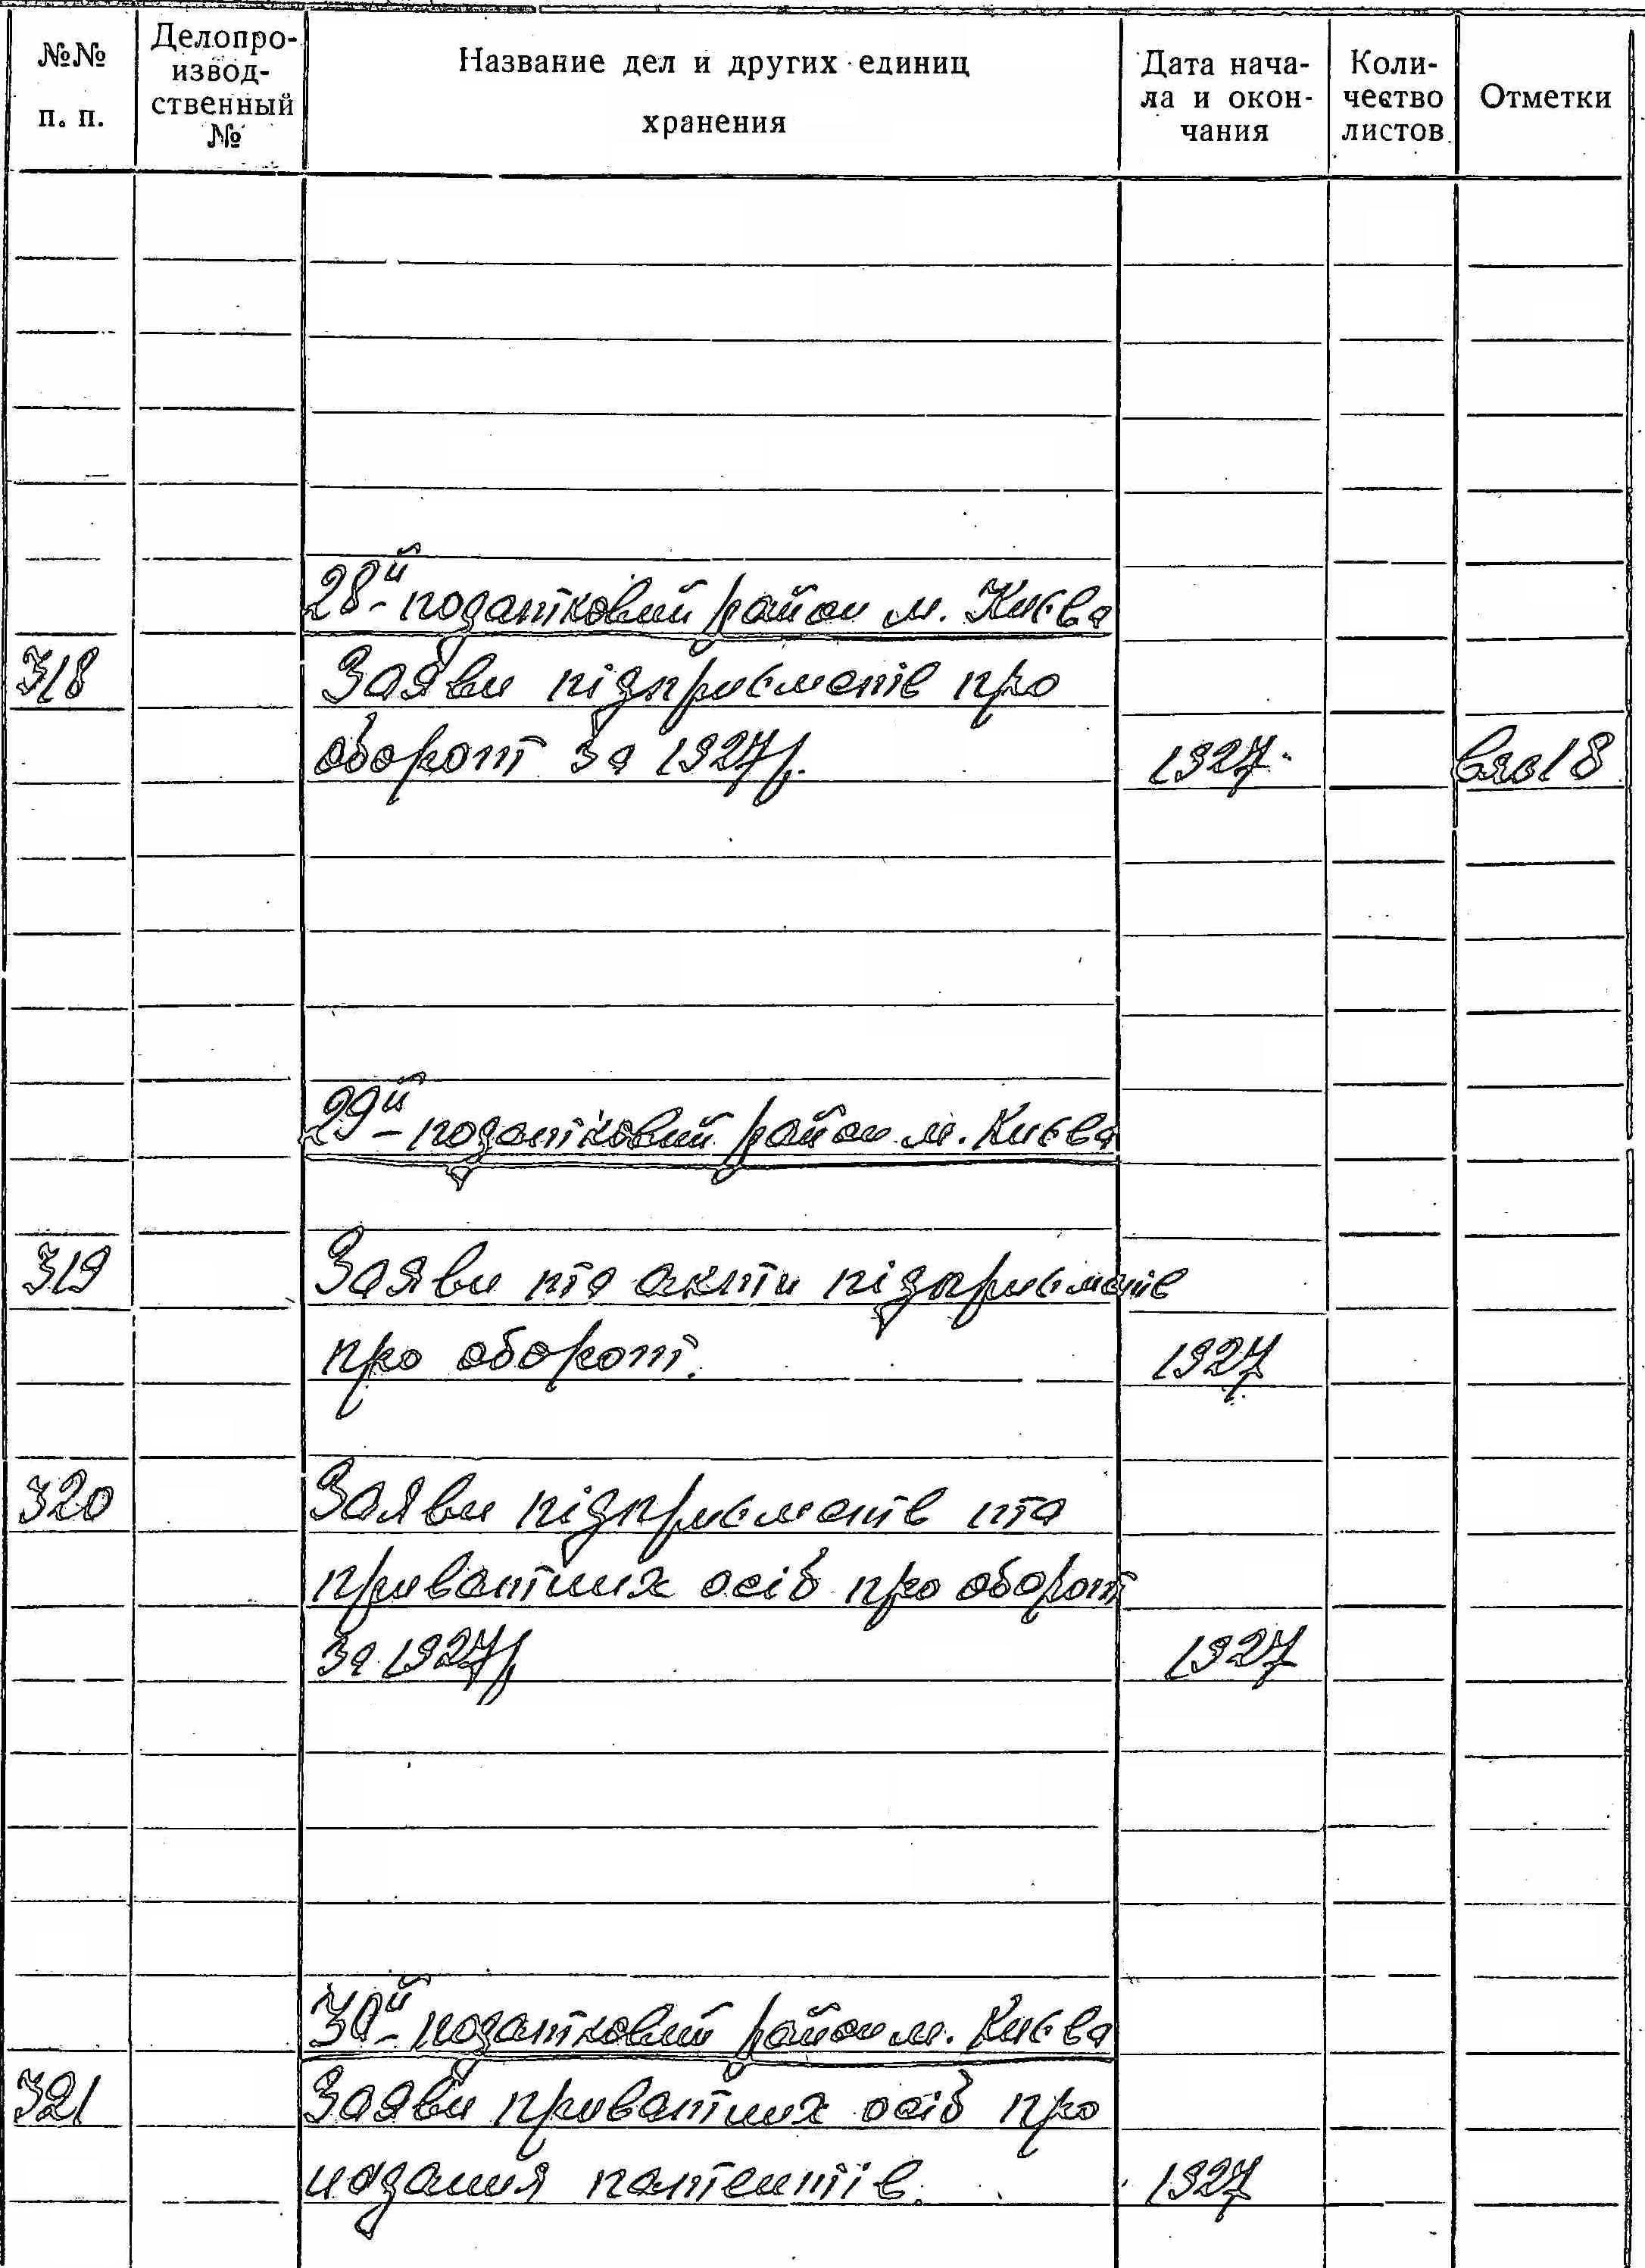 №№ п. п.
Делопро-
извод-
ственный
№
Название дел и других единиц
хранения
Дата нача-
ла и окон-
чания
Коли-
чество
листов
Отметки
28й податковий район м. Києва
318 Заяви підприємств про
оборот за 1927р. 1927
29й податковий район м. Києва
319 Заяви та акти підприємств
про оборот. 1927
320 Заяви підприємств та
приватних осіб про оборот
за 1927р. 1927
30й податковий район м. Києва
321 Заяви приватних осіб про
надання патентів. 1927